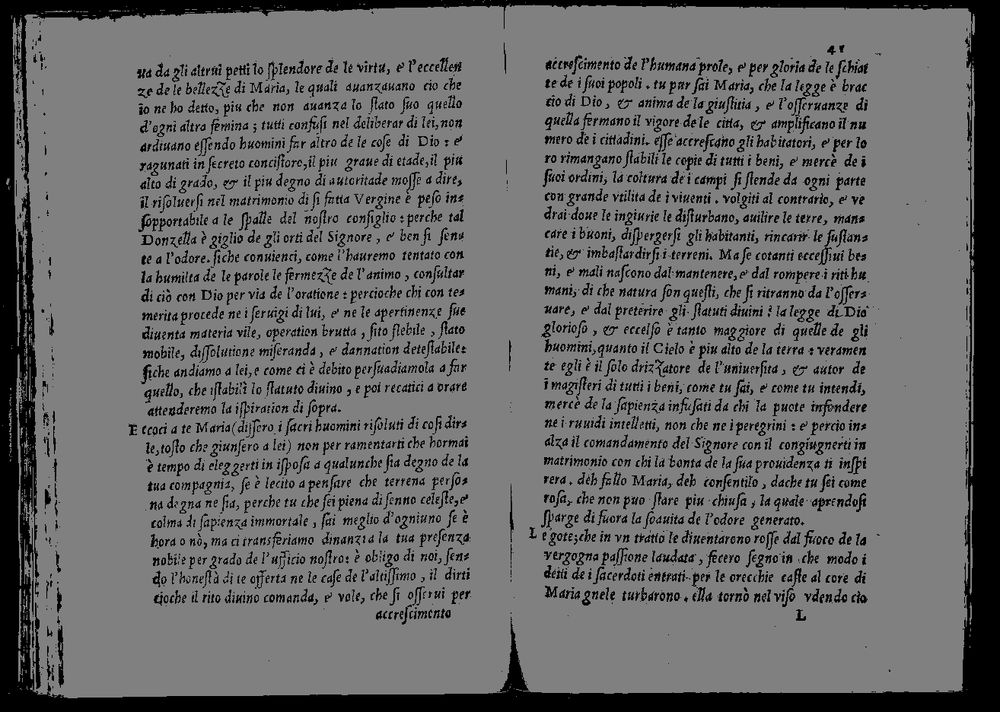 ua da gli altrui petti lo splendore de le virtu, e l'eccellen
ze de le bellezze di Maria, le quali auanzauano cio che
io ne ho detto, piu che non auanza lo stato suo quello
d'ogni altra femina; tutti confusi nel deliberar di lei, non
ardiuano essendo huomini far altro de le cose di Dio: e
ragunati in secreto concistoro, il piu graue di etade, il piu
alto di grado, & il piu degno di autoritade mosse a dire,
il risoluersi nel matrimonio di si fatta Vergine è peso in-
sopportabile a le spalle del nostro consiglio: perche tal
Donzella è giglio de gli orti del Signore, e ben si sen-
te a l'odore. siche conuienci, come l'hauremo tentato con
la humilta de le parole le fermezze de l'animo, consultar
di ciò con Dio per via de l'oratione: percioche chi con te-
merita procede ne i seruigi di lui, e ne le apertinenze sue
diuenta materia vile, operation brutta, sito flebile, stato
mobile, dissolutione miseranda, e dannation detestabile:
siche andiamo a lei, e come ci è debito persuadiamola a far
quello, che istabilì lo statuto diuino, e poi recatici a orare
attenderemo la ispiration di sopra.
Eccoci a te Maria (dissero i sacri huomini risoluti di cosi dir-
le, tosto che giunsero a lei) non per ramentarti che hormai
è tempo di eleggerti in isposa a qualunche sia degno de la
tua compagnia, se è lecito a pensare che terrena perso-
na degna ne sia, perche tu che sei piena di senno celeste, e
colma di sapienza immortale, sai meglio d'ogniuno se è
hora o nò, ma ci transferiamo dinanzi a la tua presenza
nobile per grado de l'ufficio nostro: è obligo di noi, sen-
do l'honestà di te offerta ne le case de l'altissimo, il dirti
cioche il rito diuino comanda, e vole, che si osserui per
accrescimento
41
accrescimento de l'humana prole, e per gloria de le schiat
te de i suoi popoli. tu pur sai Maria, che la legge è brac
cio di Dio, & anima de la giustitia, e l'osseruanze di
quella fermano il vigore de le citta, & amplificano il nu
mero de i cittadini. esse accrescano gli habitatori, e per lo
ro rimangano stabili le copie di tutti i beni, e mercè de i
suoi ordini, la coltura de i campi si stende da ogni parte
con grande vtilita de i viuenti. volgiti al contrario, e ve
drai doue le ingiurie le disturbano, auilire le terre, man-
care i buoni, dispergersi gli habitanti, rincarir le sustan-
tie, & imbastardirsi i terreni. Ma se cotanti eccessiui be-
ni, e mali nascono dal mantenere, e dal rompere i riti hu
mani, di che natura son questi, che si ritranno da l'osser-
uare, e dal preterire gli statuti diuini? la legge di Dio
glorioso, & eccelso è tanto maggiore di quelle de gli
huomini, quanto il Cielo è piu alto de la terra: veramen
te egli è il solo drizzatore de l'uniuersita, & autor de
i magisteri di tutti i beni, come tu sai, e come tu intendi,
mercè de la sapienza infusati da chi la puote infondere
ne i ruuidi intelletti, non che ne i peregrini: e percio in-
alza il comandamento del Signore con il congiugnerti in
matrimonio con chi la bonta de la sua prouidenza ti inspi
rera. deh fallo Maria, deh consentilo, da che tu sei come
rosa, che non puo stare piu chiusa, la quale aprendosi
sparge di fuora la soauita de l'odore generato.
Le gote, che in vn tratto le diuentarono rosse dal fuoco de la
vergogna passione laudata, fecero segno in che modo i
detti de i sacerdoti entrati per le orecchie caste al core di
Maria gnele turbarono. ella tornò nel viso vdendo cio
L